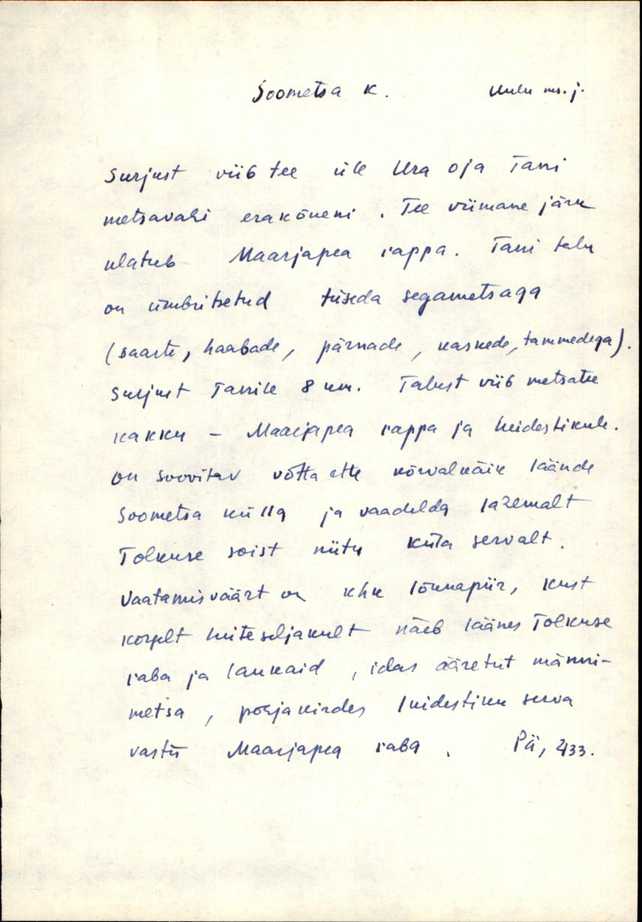 Soometsa k. Uulu ms. j.
Surjust viib tee üle Ura oja Tani
metsavahi erakõneni. Tee viimane järk
ulatub Maarjapea rappa. Tani talu
on ümbritsetud tüseda segametsaga
(saarte, haabade, pärnade, kaskede, tammedega).
Surjust Tanile 8 km. Talust viib metsatee
kakku - Maarjapea rappa ja luidestikule.
On soovitav võtta ette kõrvalkäik läände
Soometsa külla ja vaadelda lähemalt
Tolkuse soist niitu küla servalt.
Vaatamisväärt on küla lõunapiir, kust
kõrgelt luiteseljakult näeb läänes Tolkuse
raba ja laukaid, idas ääretut männi-
metsa, põhjakirdes luidestiku serva
vastu Maarjapea raba. Pä, 433.